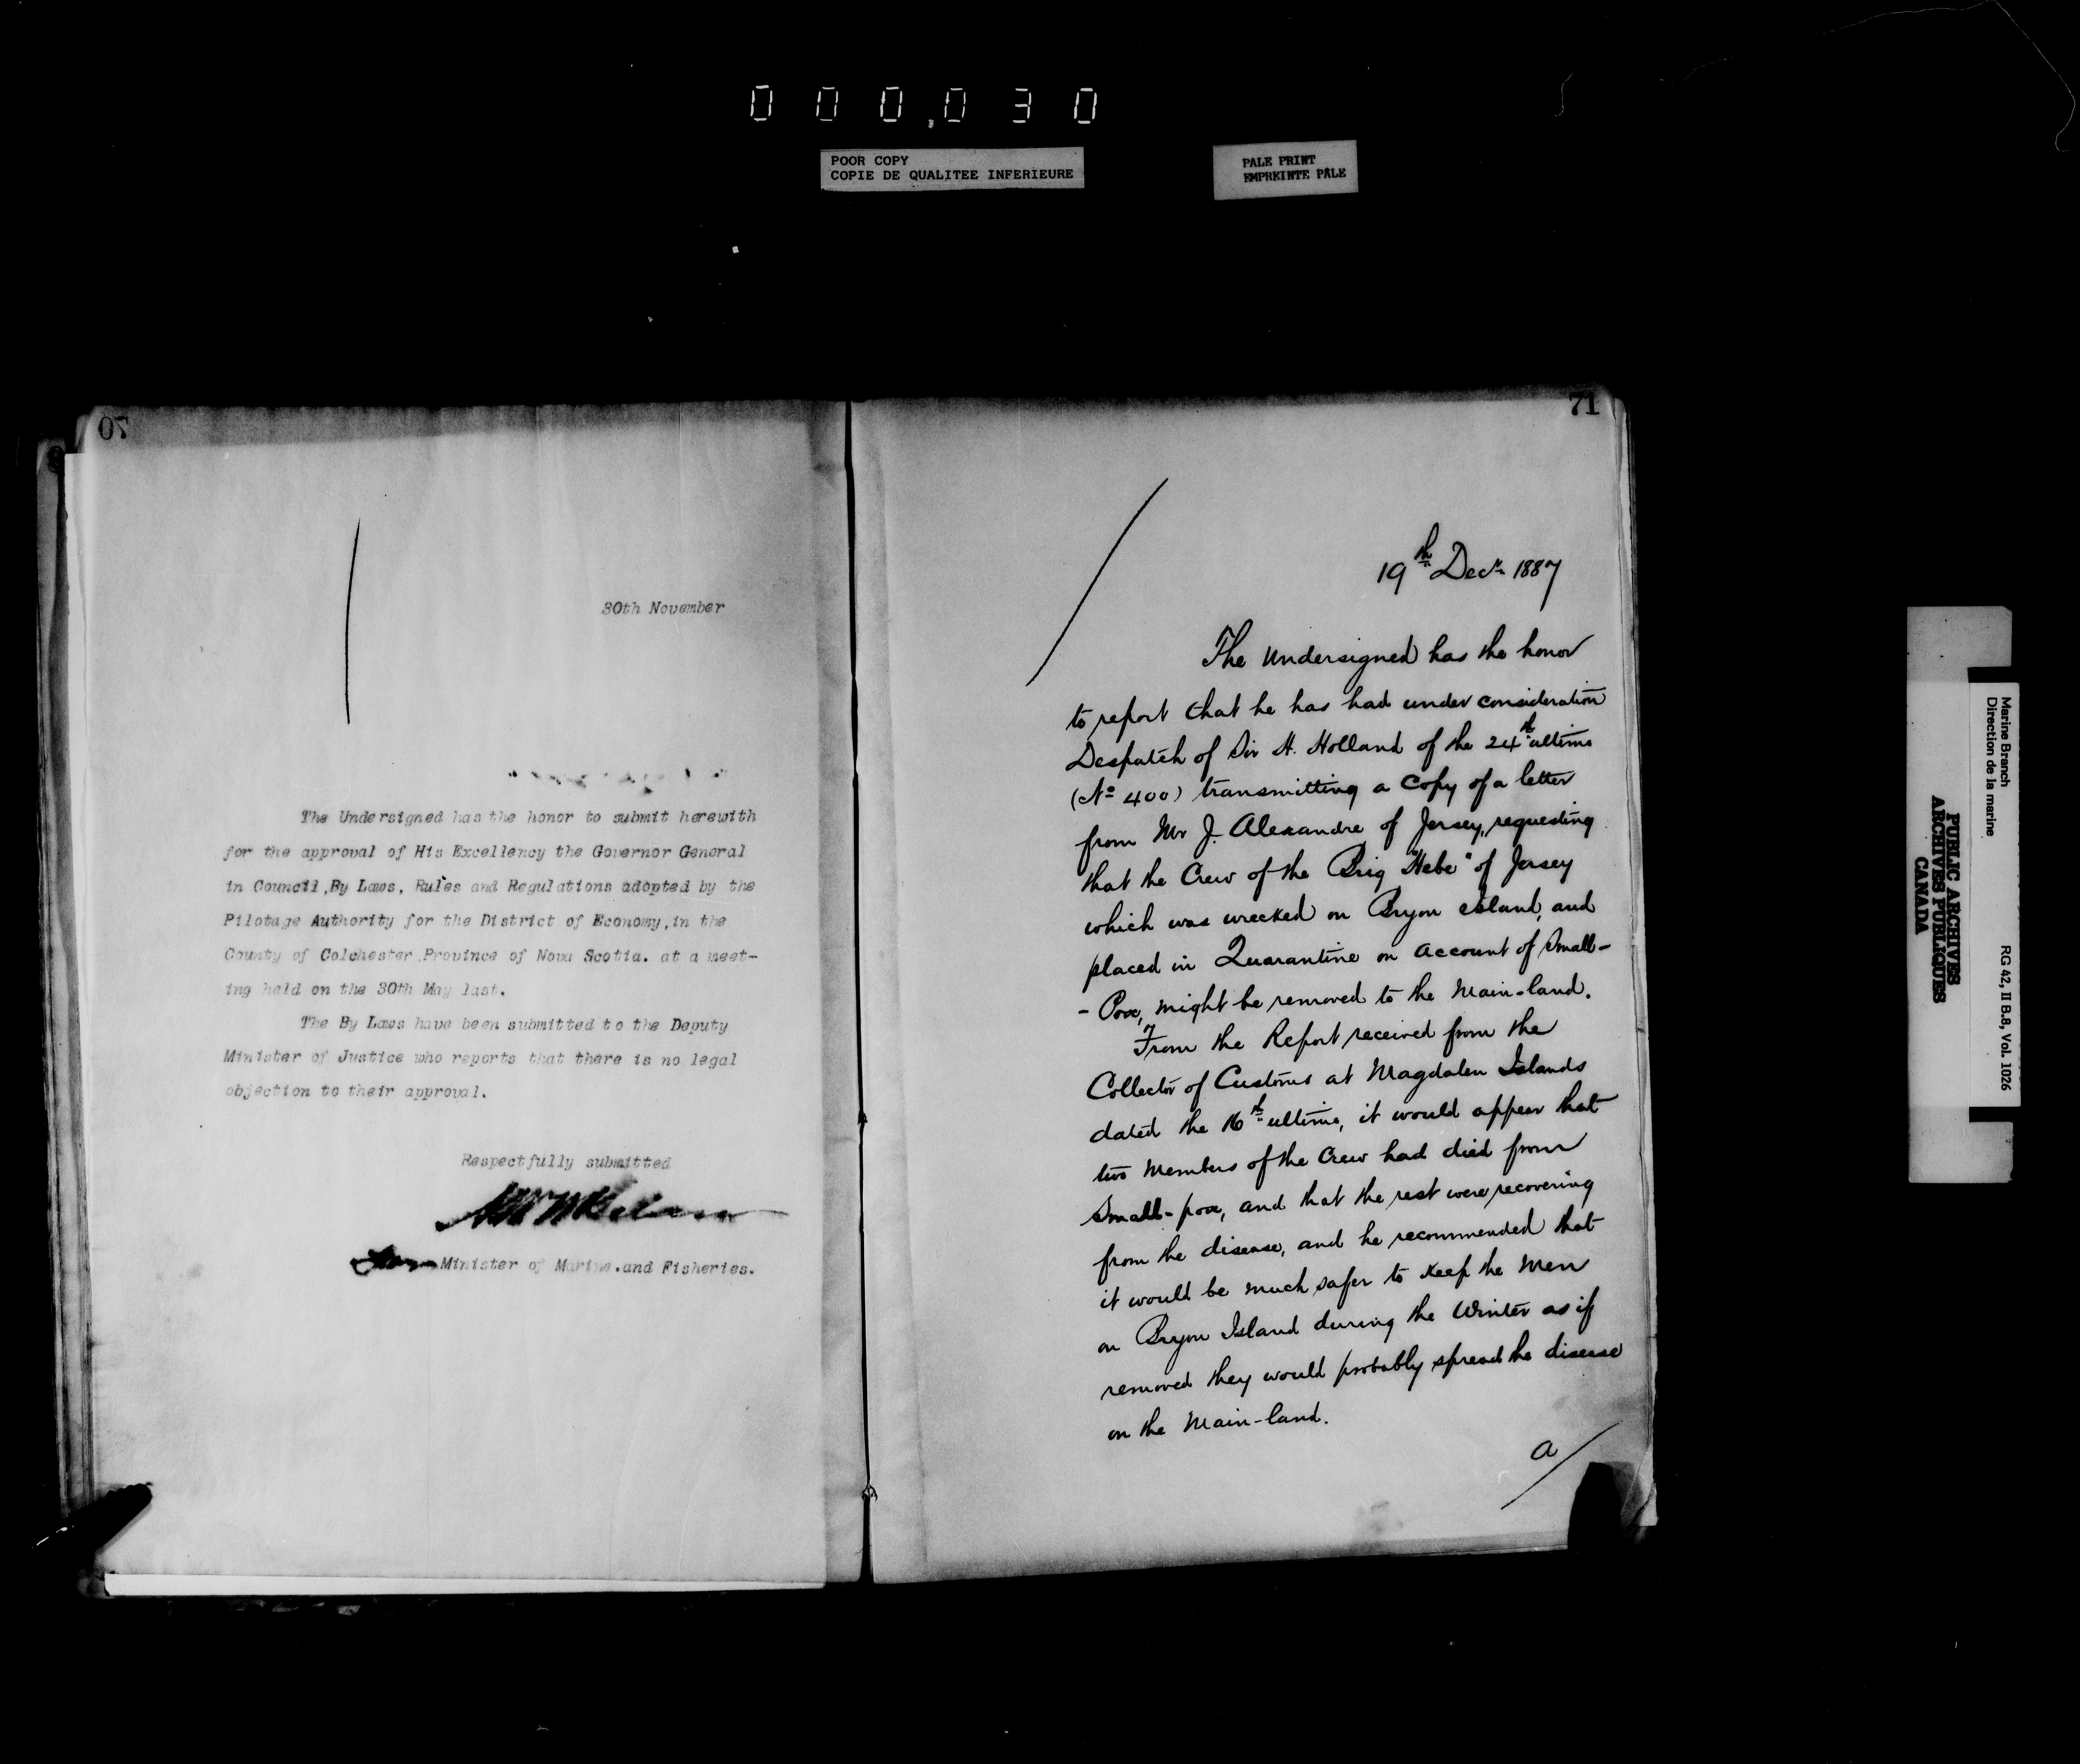 000,030
POOR COPY
COPIE DE QUALITEE INFERIEURE
PALE PRINT
EMPREINTE PÂLE
70
30th November
The Undersigned has the honor to submit herewith
for the approval of His Excellency the Governor General
in Council, By Laws, Rules and Regulations adopted by the
Pilotage Authority for the District of Economy, in the
County of Colchester, Province of Nova Scotia. at a meet-
ing held on the 30th May last.
The By Laws have been submitted to the Deputy
Minister of Justice who reports that there is no legal
objection to their approval.
Respectfully submitted
Minister of Marine.and Fisheries.
71
19th Decr 1887
The Undersigned has the honor
to report that he has had under consideration
Despatch of Sir H. Holland of the 24th ultimo
(No 400) transmitting a Copy of a letter
from Mr J. Alexandre of Jersey, requesting
that the Crew of the Brig "Hebe" of Jersey
which was wrecked on Bryon Island, and
placed in Quarantine on account of Small-
- Pox, might be removed to the Main-land.
From the Report received from the
Collector of Customs at Magdalen Islands
dated the 16th ultimo, it would appear that
two Members of the Crew had died from
Small-pox, and that the rest were recovering
from the disease, and he recommended that
it would be much safer to keep the Men
on Bryon Island during the Winter as if
removed they would probably spread the disease
on the Main-land.
a/
Marine Branch
Direction de la marine
RG 42, II B.8, Vol. 1026
PUBLIC ARCHIVES
ARCHIVES PUBLIQUES
CANADA